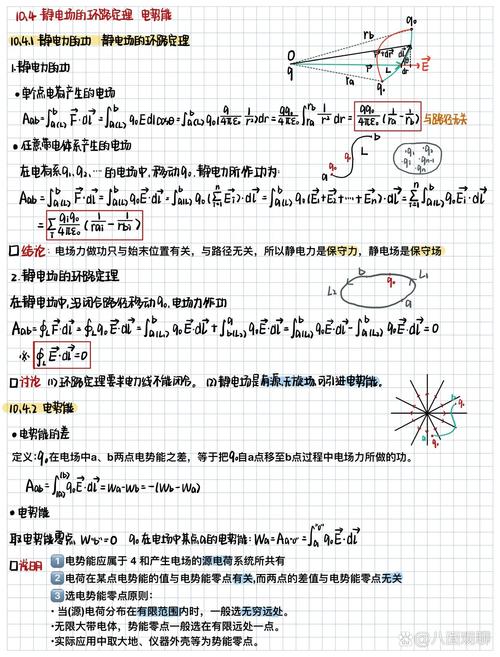 10.4 静电场的环路定理 电势能
10.4.1 静电力的功 静电场的环路定理
1.静电力的功
•单个点电荷产生的电场
Aab=∫ᵇₐ₍L₎ F⃗·dl⃗=∫ᵇₐ₍L₎ q₀Edlcosθ=∫ᵇₐ₍L₎ q₀(q/4πε₀ 1/r²)dr=qq₀/4πε₀ ∫_{ra}^{rb} 1/r² dr=qq₀/4πε₀(1/ra-1/rb) 与路径无关
•任意带电体系产生的电场
在电荷系q₁、q₂、…的电场中,移动q₀,静电力所作功为:
Aab=∫ᵇₐ₍L₎ F⃗·dl⃗=∫ᵇₐ₍L₎ q₀E⃗·dl⃗=∫ᵇₐ₍L₎ q₀(∑ⁿᵢ₌₁E⃗i)·dl⃗=∫ᵇₐ₍L₎ q₀(E⃗₁+E⃗₂+…+E⃗n)·dl⃗=∑ⁿᵢ₌₁∫ᵇₐ₍L₎ q₀E⃗i·dl⃗
=∑ᵢ qiq₀/4πε₀(1/rai-1/rbi)
结论:电场力做功只与始末位置有关,与路径无关,所以静电力是保守力,静电场是保守场
2.静电场的环路定理
在静电场中,沿闭合路径移动q₀,电场力作功
Aab=∮L F⃗·dl⃗=∮L q₀E⃗·dl⃗=∫ᵇₐ₍L₁₎ q₀E⃗·dl⃗+∫ᵃ_b₍L₂₎ q₀E⃗·dl⃗=∫ᵇₐ₍L₁₎ q₀E⃗·dl⃗-∫ᵇₐ₍L₂₎ q₀E⃗·dl⃗=0
※ ∮L E⃗·dl⃗=0
讨论 (1)环路定理要求电力线不能闭合。(2)静电场是有源、无旋场,可引进电势能。
10.4.2 电势能
•电势能的差
定义:q₀在电场中a、b两点电势能之差,等于把q₀自a点移至b点过程中电场力所做的功。
Aab=∫₍ₐ₎⁽ᵇ⁾ q₀E⃗·dl⃗=Wa-Wb=-(Wb-Wa)
•电势能
取电势能零点 W"0"=0 q₀在电场中某点a的电势能:Wa=Aa"0"=∫ₐ"⁰" q₀E⃗·dl⃗
说明 1 电势能应属于 4 和产生电场的源电荷系统所共有
2 电荷在某点电势能的值与电势能零点有关,而两点的差值与电势能零点无关
3 选电势能零点原则:
·当(源)电荷分布在有限范围内时,一般选无穷远处。
·无限大带电体,势能零点一般选在有限远处一点。
·实际应用中取大地、仪器外壳等为势能零点。